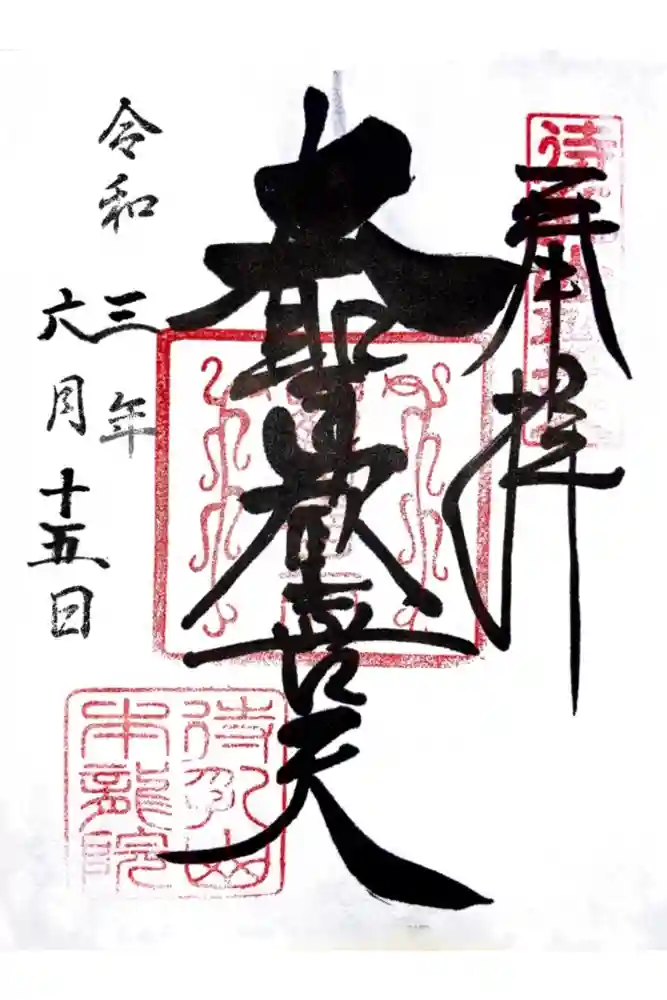 奉拝
大聖歓喜天
令和三年
六月十五日
待乳山
本龍院